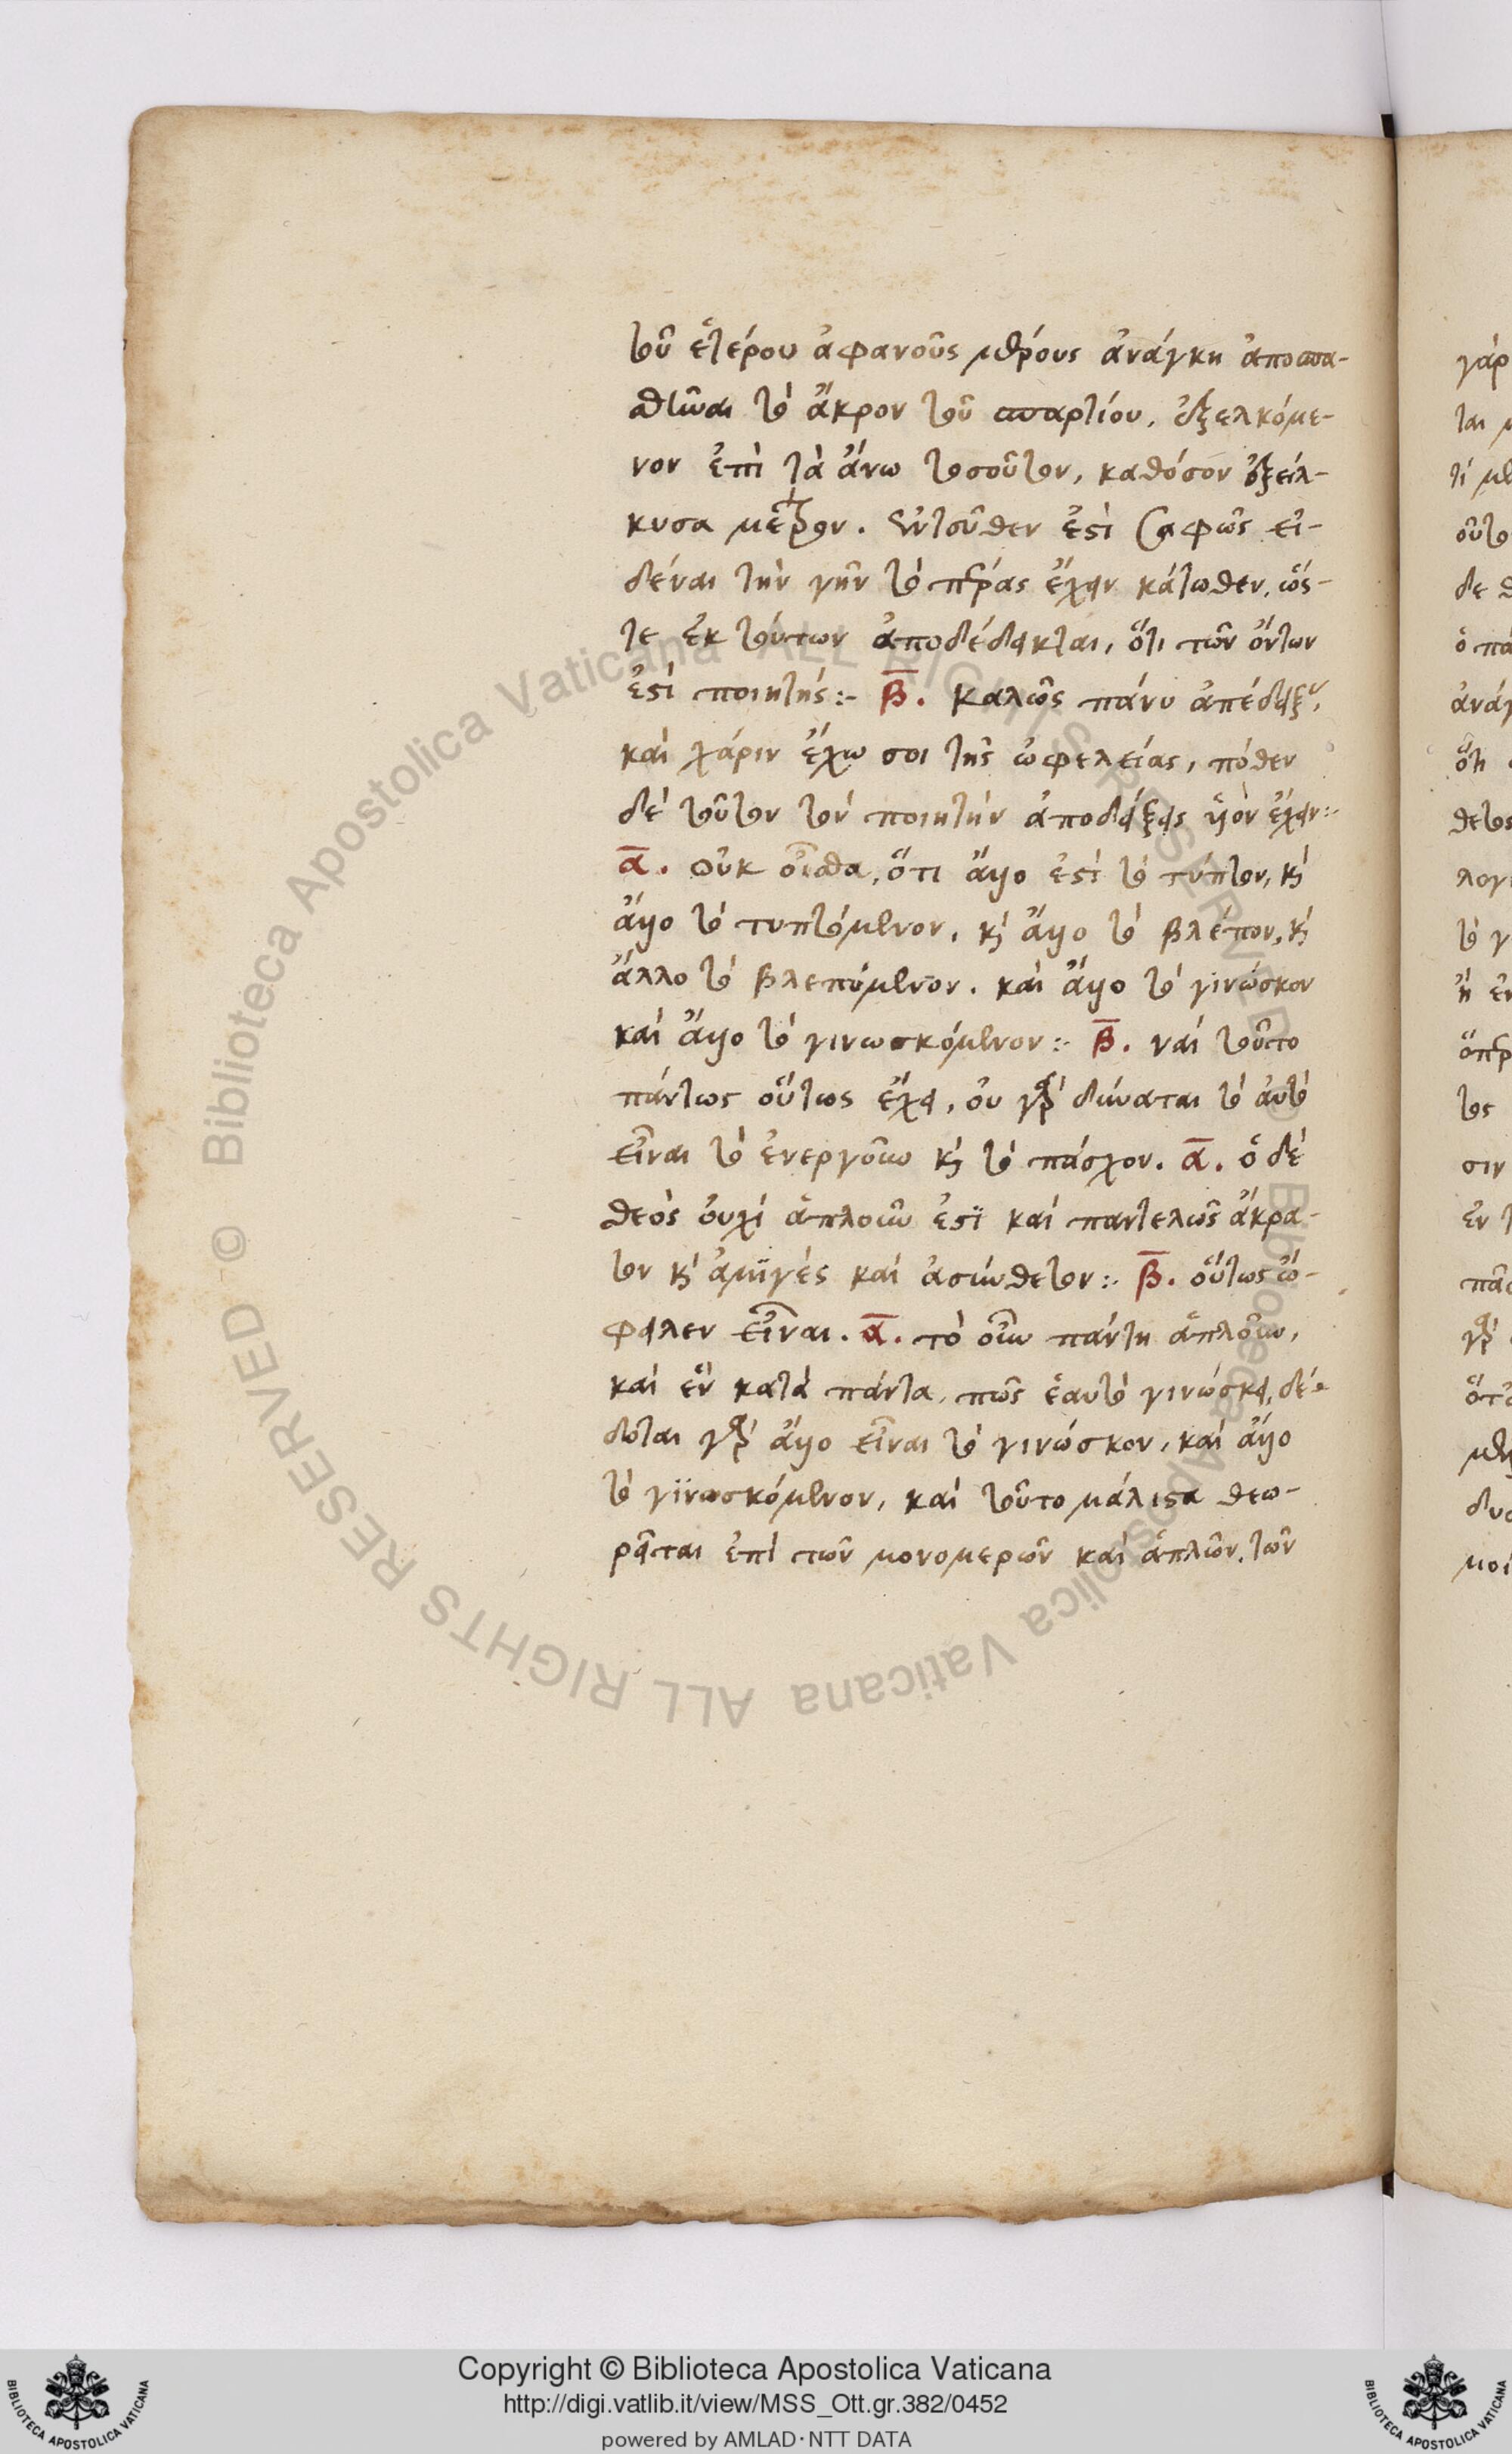 τοῦ ἑτέρου ἀφανοῦς μέρους ἀνάγκη ἀποσπα-
σθῆναι τὸ ἄκρον τοῦ σπαρτίου, ἐξελκόμε-
νον ἐπὶ τὰ ἄνω τοσοῦτον, καθόσον ἐξείλ-
κυσα μέτρον. ἐντοῦθεν ἐστὶ σαφῶς εἰ-
δέναι τὴν γῆν τὸ πέρας ἔχειν κάτωθεν, ὥς-
τε ἐκ τούτων ἀποδέδεικται, ὅτι τῶν ὄντων
ἐστὶ ποιητής:- β. καλῶς πάνυ ἀπέδειξας,
καὶ χάριν ἔχω σοι τῆς ὠφελείας, πόθεν
δὲ τοῦτον τὸν ποιητὴν ἀποδείξεις ἔχειν:-
α. οὐκ οἶσθα, ὅτι ἄλλο ἐστὶ τὸ τύπτον, καὶ
ἄλλο τὸ τυπτόμενον, καὶ ἄλλο τὸ βλέπον, καὶ
ἄλλο τὸ βλεπόμενον. καὶ ἄλλο τὸ γινώσκον
καὶ ἄλλο τὸ γινωσκόμενον:- β. ναὶ τοῦτο
πάντως οὕτως ἔχει, οὐ γὰρ δύναται τὸ αὐτὸ
εἶναι τὸ ἐνεργοῦν καὶ τὸ πάσχον. α. ὁ δὲ
θεὸς οὐχὶ ἁπλοῦν ἐστὶ καὶ παντελῶς ἄκρα-
τον καὶ ἀμιγὲς καὶ ἀσύνθετον:- β. οὕτως ὤ-
φειλεν εἶναι. α. τὸ οὖν πάντη ἁπλοῦν,
καὶ ἓν κατὰ πάντα, πῶς ἑαυτὸ γινώσκει, δέ-
δοται γὰρ ἄλλο εἶναι τὸ γινώσκον, καὶ ἄλλο
τὸ γινωσκόμενον, καὶ τοῦτο μάλιστα θεω-
ρεῖται ἐπὶ τῶν μονομερῶν καὶ ἁπλῶν, τῶν
Copyright © Biblioteca Apostolica Vaticana
http://digi.vatlib.it/view/MSS_Ott.gr.382/0452
powered by AMLAD·NTT DATA